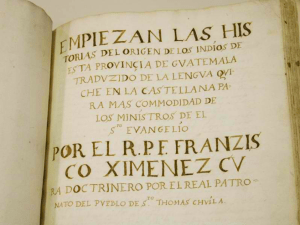 EMPIEZAN LAS HIS
TORIAS DEL ORIGEN DE LOS INDIOS DE
ESTA PROVINÇIA DE GUATEMALA
TRADVZIDO DE LA LENGUA QUI
CHE EN LA CASTELLANA PA
RA MAS COMMODIDAD DE
LOS MINISTROS DE EL
Sto EVANGELIO
POR EL R.P.F. FRANZIS
CO XIMENEZ CV
RA DOCTRINERO POR EL REAL PATRO
NATO DEL PVEBLO DE Sto THOMAS CHVILA.